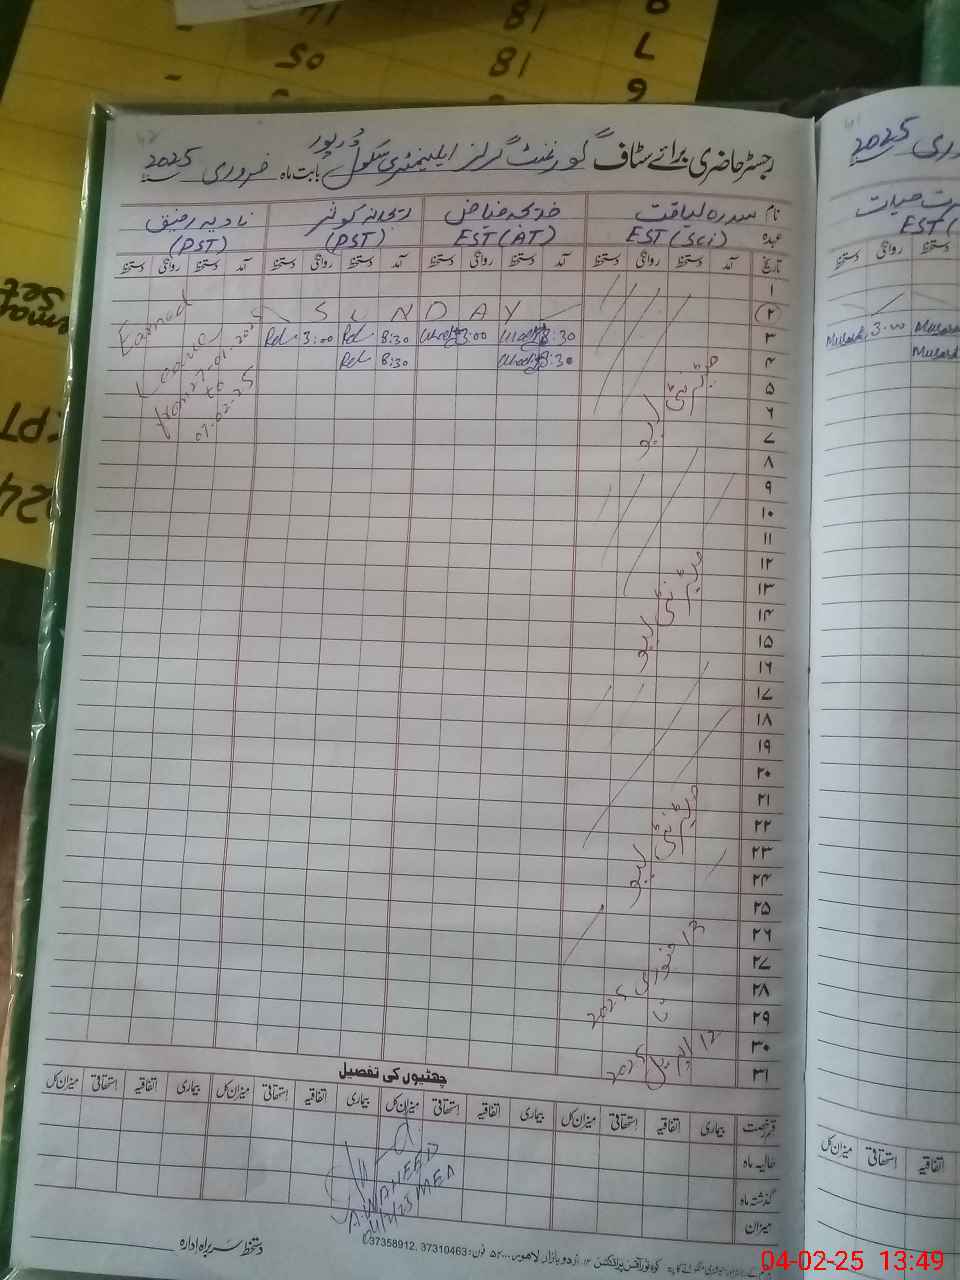 رجسٹر حاضری برائے سٹاف گورنمنٹ گرلز ایلیمنٹری سکول دُرپور بابت ماہ فروری 2025
نام سدرہ لیاقت خدیجہ فیاض ریحانہ کوثر نادیہ رفیق
عہدہ EST (Sci) EST (AT) (PST) (PST)
تاریخ آمد دستخط روانگی دستخط آمد دستخط روانگی دستخط آمد دستخط روانگی دستخط آمد دستخط روانگی دستخط
۱
۲ SUNDAY
۳ 8:30 3:00 8:30 3:00
۴ 8:30 8:30
۵
۶
۷
۸
۹
۱۰
۱۱
۱۲
۱۳
۱۴
۱۵
۱۶
۱۷
۱۸
۱۹
۲۰
۲۱
۲۲
۲۳
۲۴
۲۵
۲۶
۲۷
۲۸
۲۹
۳۰
۳۱
میٹرنٹی لیو
میٹرنٹی لیو
میٹرنٹی لیو
13 جنوری 2025
تا
12 اپریل 2025
Earned
Leave
from 27-01-2025
to
07-02-25
چھٹیوں کی تفصیل
قسم رخصت بیماری اتفاقیہ استحقاقی میزان کل بیماری اتفاقیہ استحقاقی میزان کل بیماری اتفاقیہ استحقاقی میزان کل بیماری اتفاقیہ استحقاقی میزان کل
حالیہ ماہ
گذشتہ ماہ
میزان
A.WAHEED
MEA
دستخط سربراہ ادارہ
اردو بازار لاہور فون: 37358912, 37310463
2025
EST (
روانگی دستخط
دستخط
3:00
اتفاقیہ استحقاقی میزان کل
18
05
18
7
6
04-02-25 13:49